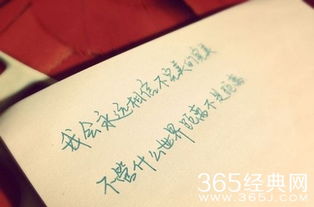 我会永远相信不完美的完美
不管什么世界距离不是距离
365经典网
WWW.365J.COM